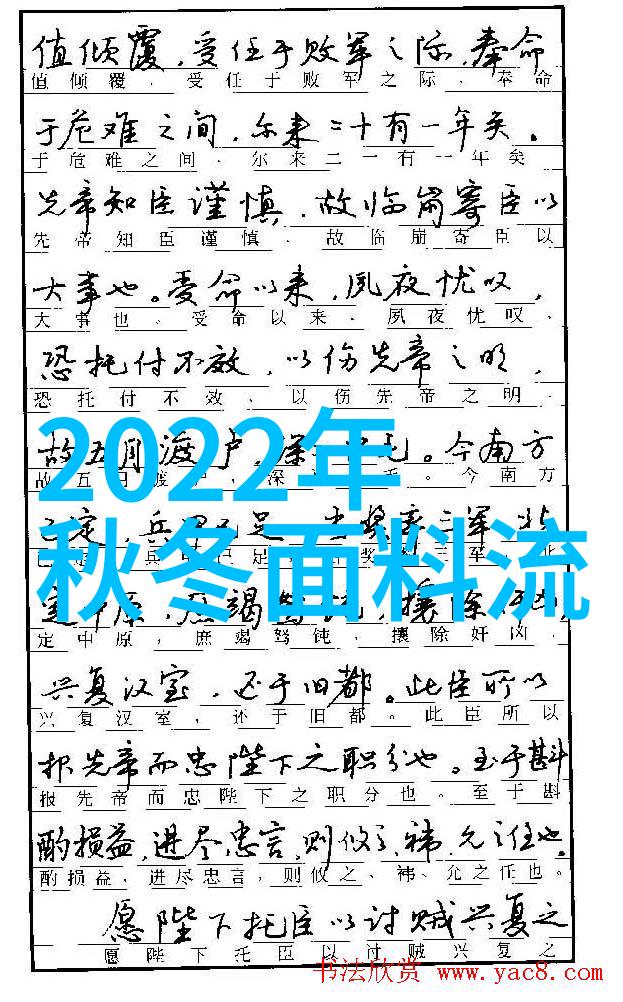 值倾覆,受任于败军之际,奉命
值倾覆,受任于败军之际、奉命
于危难之间,尔来二十有一年矣。
于危难之间、尔来二一有一年矣
先帝知臣谨慎,故临崩寄臣以
先帝知臣谨慎、故临崩寄臣以
大事也。受命以来,夙夜忧叹,
大事也、受命以来、夙夜忧叹、
恐托付不效,以伤先帝之明,
恐托付不效、以伤先帝之明、
2022年
故五月渡卢,深 。今南方
故五 深 。今南方
已定,兵甲已足, 奖帅三军,北
兵 已足, 奖 三军,北
秋冬面料流
定中原,庶竭驽钝,攘除奸凶,
定中原,庶竭驽钝,攘除奸凶,
兴复汉室,还于旧都。此臣所以
兴复汉室,还于旧都。此臣所以
报先帝而忠陛下之职分也。至于斟
报先帝而忠陛下之职分也。至于斟
酌损益,进尽忠言,则攸之、祎、允之任也。
酌损益、进尽忠言,则攸之、祎、允之任也。
愿陛下托臣以讨贼兴复之
愿陛下托臣以讨贼兴复之
书法欣赏 www.yac8.com